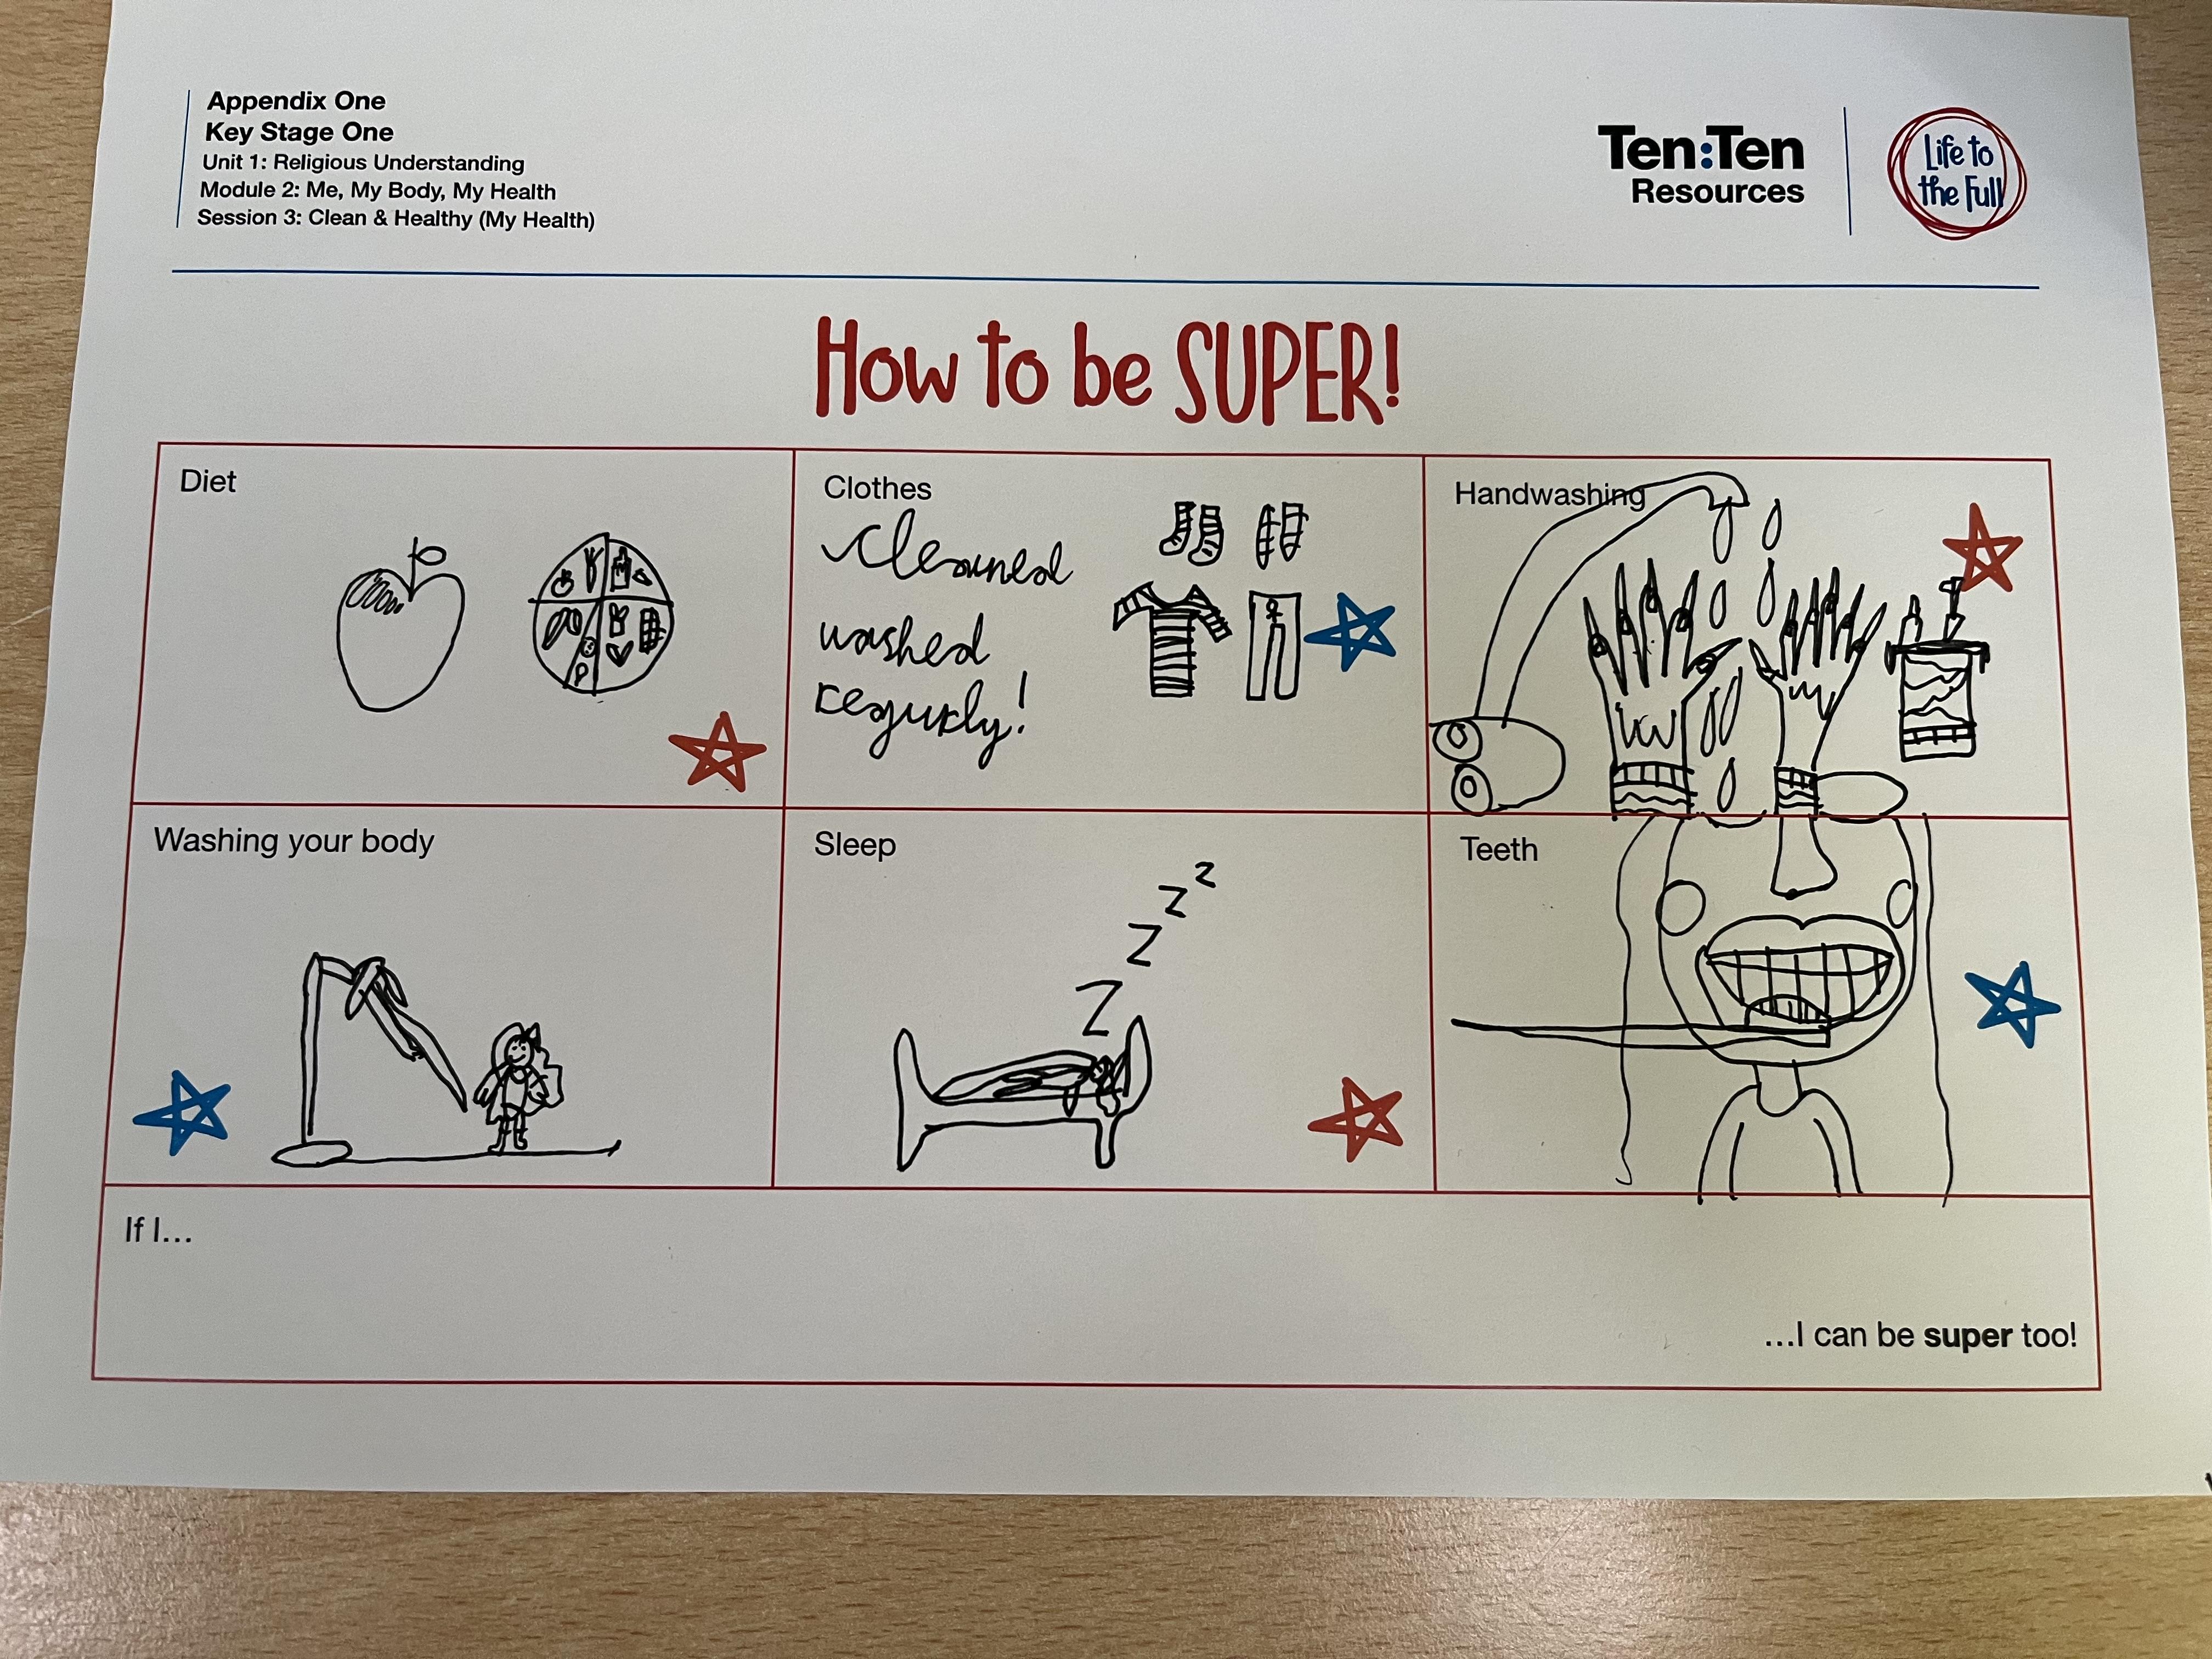 Appendix One
Key Stage One
Unit 1: Religious Understanding
Module 2: Me, My Body, My Health
Session 3: Clean & Healthy (My Health)
Ten:Ten
Resources
Life to
the Full
How to be SUPER!
Diet
Clothes
Cleaned
washed
regurly!
Handwashing
Washing your body
Sleep
Z z z z
Teeth
If I...
...I can be super too!